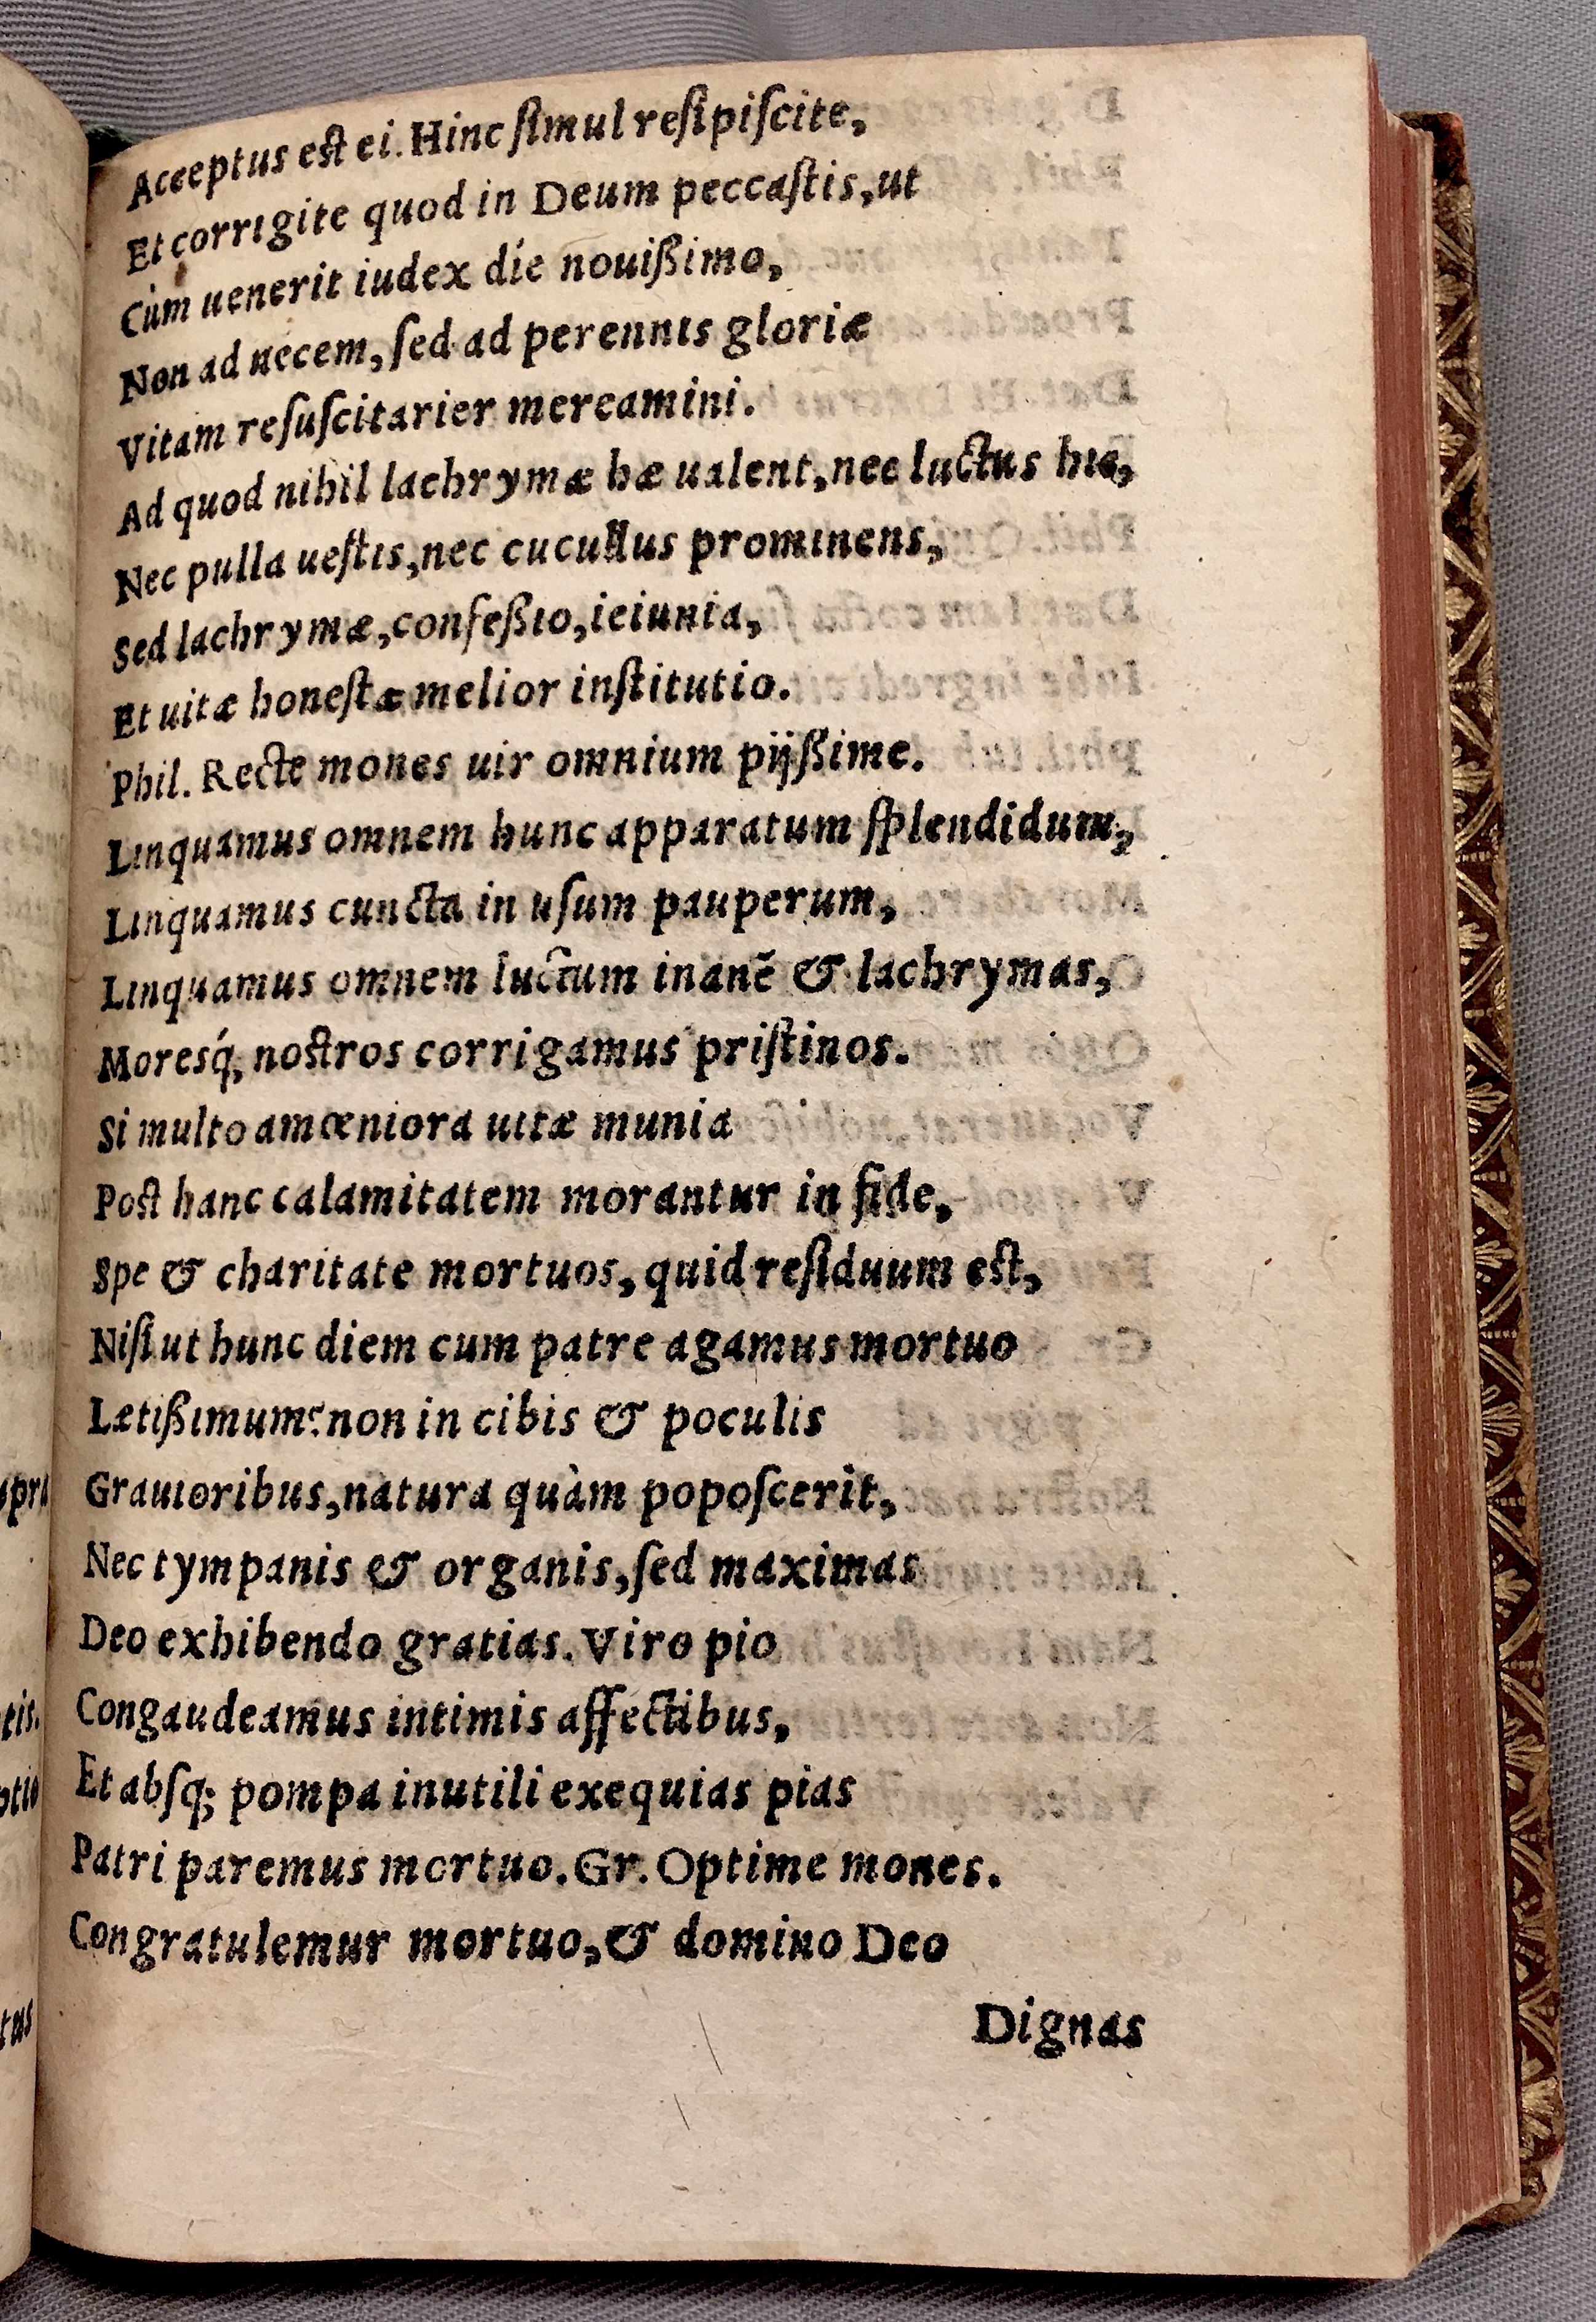 Acceptus est ei. Hinc ſimul reſipiſcite,
Et corrigite quod in Deum peccaſtis, ut
Cùm uenerit iudex die nouißimo,
Non ad necem, ſed ad perennis gloriæ
Vitam reſuſcitarier mereamini.
Ad quod nihil lachrymæ hæ ualent, nec luctus hic,
Nec pulla ueſtis, nec cucullus prominens,
Sed lachrymæ, confeßio, ieiunia,
Et uitæ honeſtæ melior inſtitutio.
Phil. Recte mones uir omnium pijßime.
Linquamus omnem hunc apparatum ſplendidum,
Linquamus cuncta in uſum pauperum,
Linquamus omnem luctum inanē & lachrymas,
Moresq́; nostros corrigamus priſtinos.
Si multo amœniora uitæ munia
Post hanc calamitatem morantur in fide,
Spe & charitate mortuos, quid reſiduum est,
Niſi ut hunc diem cum patre agamus mortuo
Lætißimum? non in cibis & poculis
Grauioribus, natura quàm popoſcerit,
Nec tympanis & organis, ſed maximas
Deo exhibendo gratias. Viro pio
Congaudeamus intimis affectibus,
Et abſq; pompa inutili exequias pias
Patri paremus mortuo. Gr. Optime mones.
Congratulemur mortuo, & domino Deo
Dignas